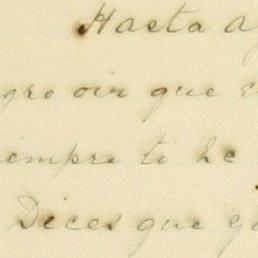 Hasta a
gro oir que e
iempre te he
Dices que g